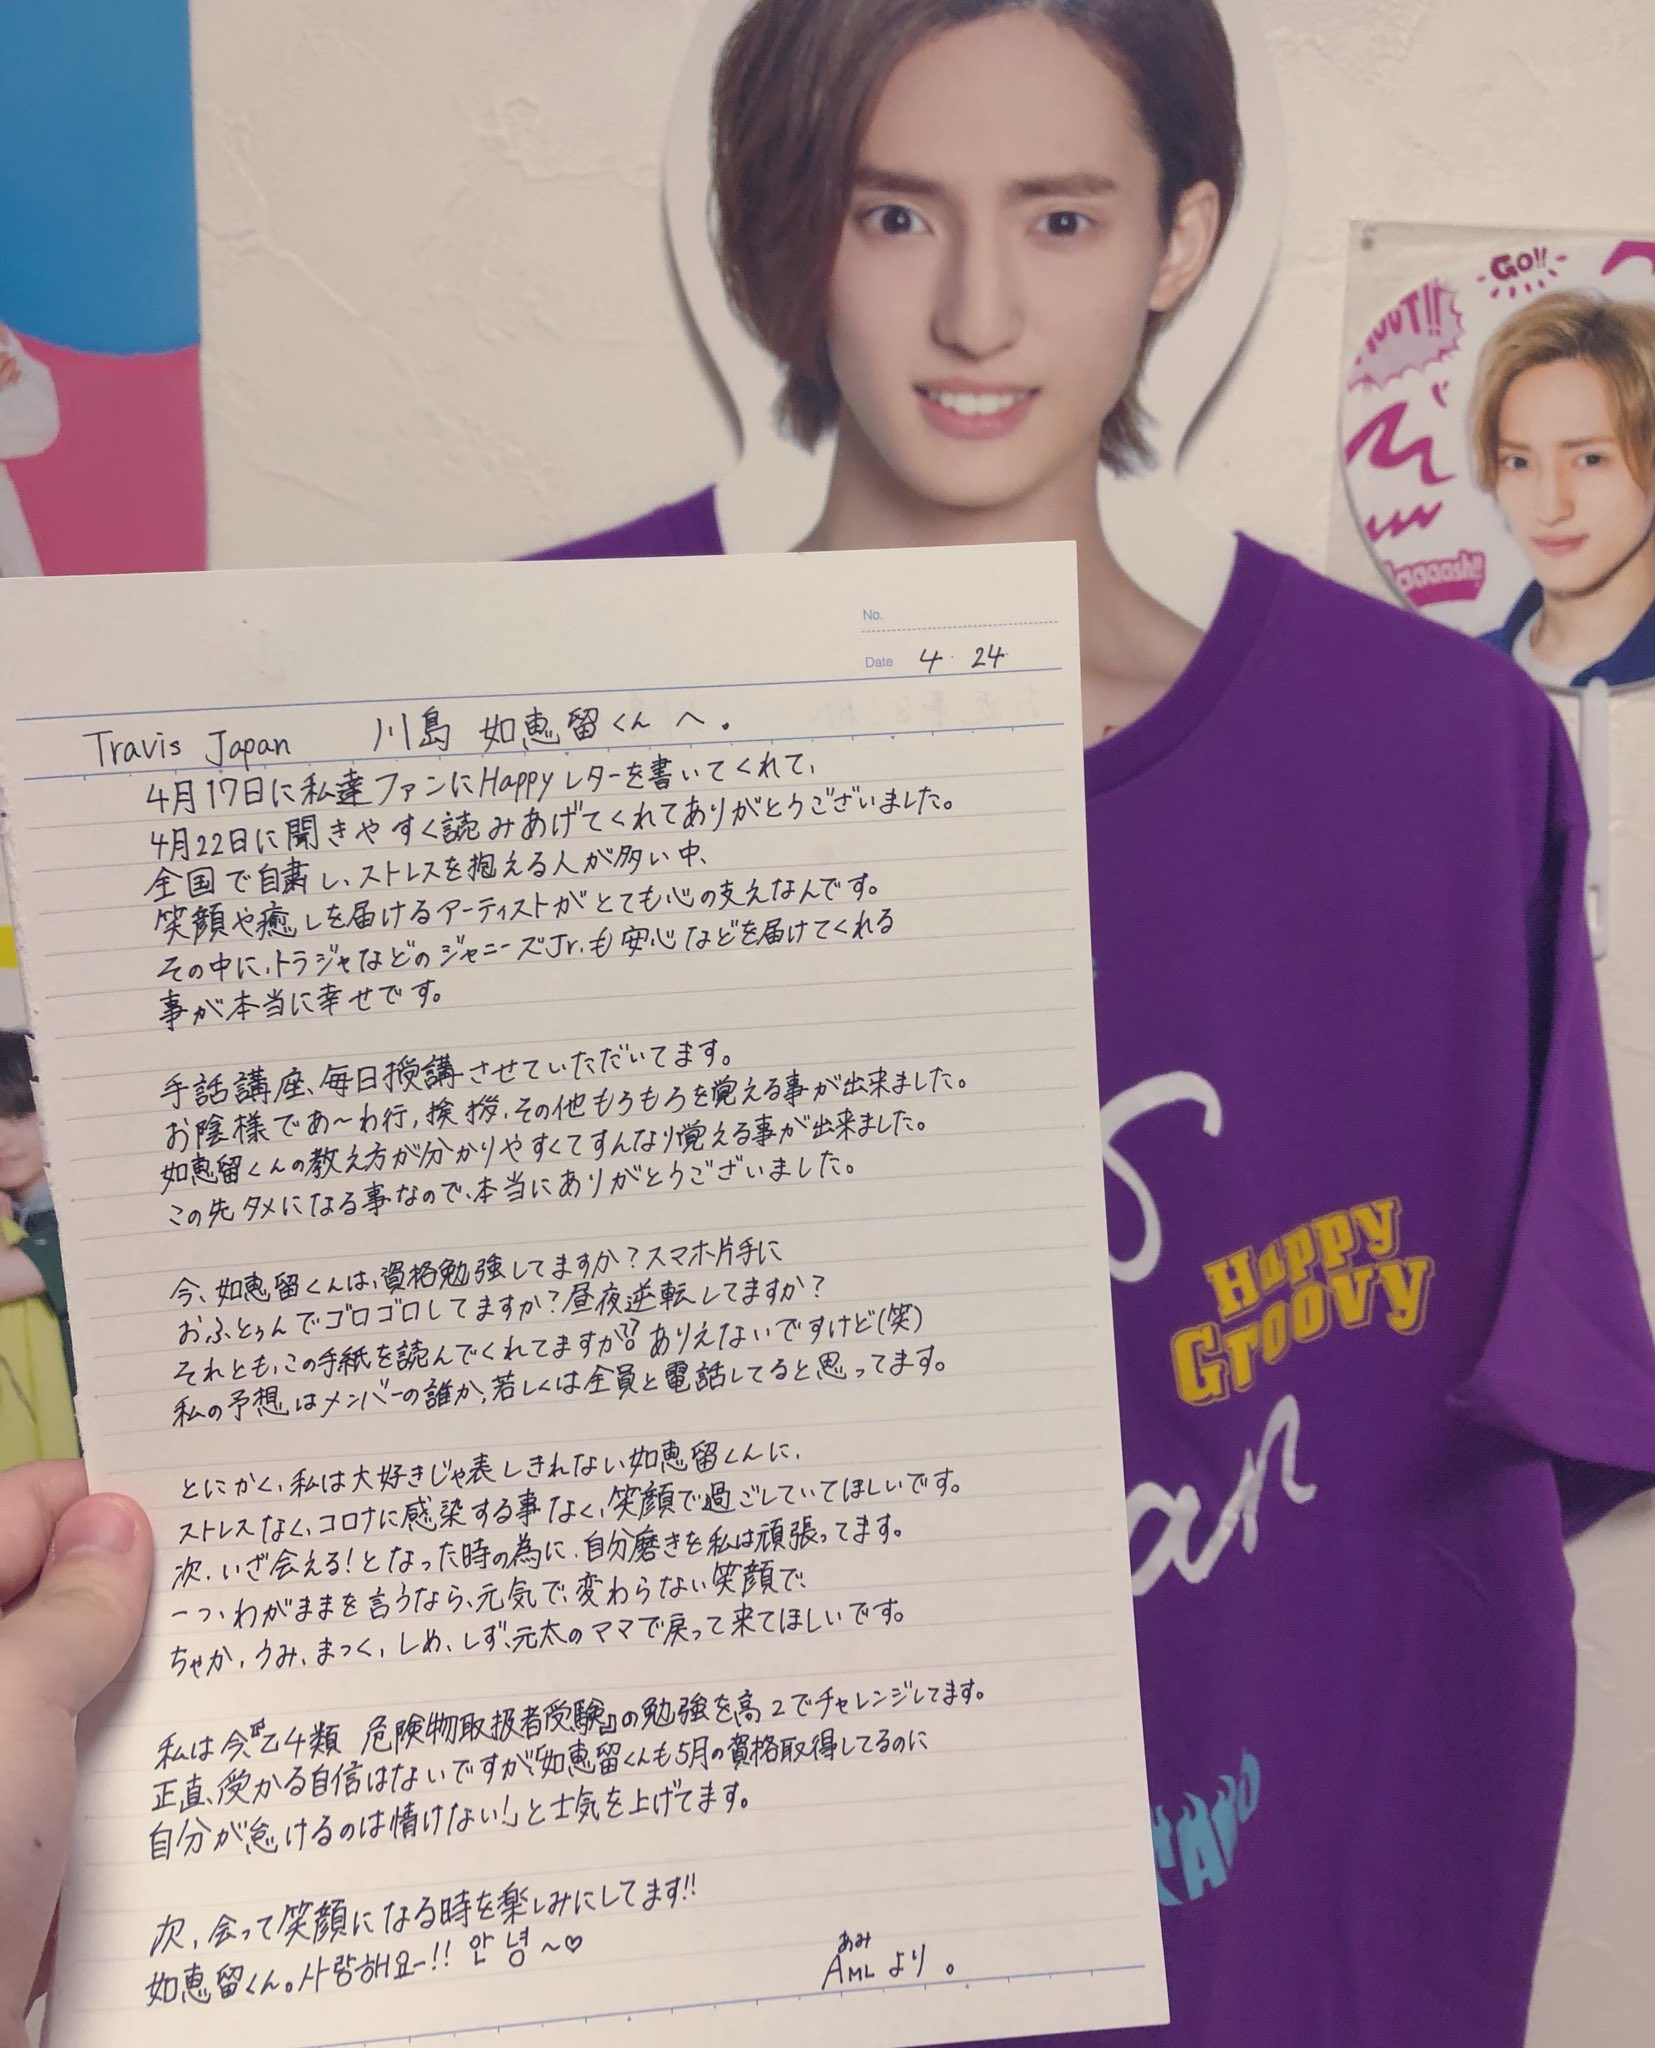 GO!!
OUT!!
aaaaash!!
No.
Date 4 24
Travis Japan 川島 如恵留くんへ.
4月17日に私達ファンにHappyレターを書いてくれて、
4月22日に聞きやすく読みあげてくれてありがとうございました。
全国で自粛し、ストレスを抱える人が多い中、
笑顔や癒しを届けるアーティストがとても心の支えなんです。
その中に、トラジャなどのジャニーズJr.も安心などを届けてくれる
事が本当に幸せです。
手話講座、毎日授講させていただいてます。
お陰様であ~わ行,挨拶,その他もろもろを覚える事が出来ました。
如恵留くんの教え方が分かりやすくてすんなり覚える事が出来ました。
この先タメになる事なので、本当にありがとうございました。
今、如恵留くんは、資格勉強してますか?スマホ片手に
おふとぅんでゴロゴロしてますか?昼夜逆転してますか?
それとも、この手紙を読んでくれてますか??ありえないですけど(笑)
私の予想はメンバーの誰か,若しくは全員と電話してると思ってます。
とにかく、私は大好きじゃ表しきれない如恵留くんに、
ストレスなく、コロナに感染する事なく、笑顔で過ごしていてほしいです。
次、いざ会える!となった時の為に、自分磨きを私は頑張ってます。
一つ、わがままを言うなら、元気で、変わらない笑顔で、
ちゃか,うみ,まっく,しめ、しず、元太のママで戻って来てほしいです。
私は今、『乙4類 危険物取扱者受験』の勉強を高2でチャレンジしてます。
正直、受かる自信はないですが「如恵留くんも5月の資格取得してるのに
自分が怠けるのは情けない!」と士気を上げてます。
次,会って笑顔になる時を楽しみにしてます!!
如恵留くん。사랑해요-!! 안녕~♡
あみ
AMI より。
S
Happy
Groovy
an